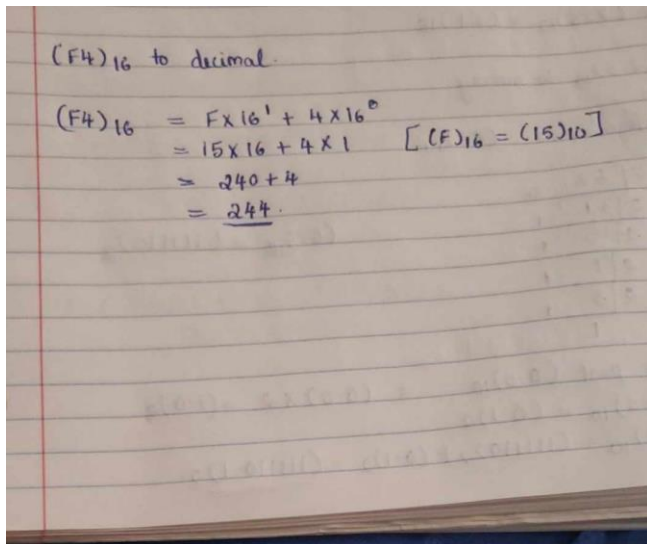 (F4)₁₆ to decimal.
(F4)₁₆ = F×16¹ + 4×16⁰
= 15×16 + 4×1 [(F)₁₆ = (15)₁₀]
= 240+4
= 244.